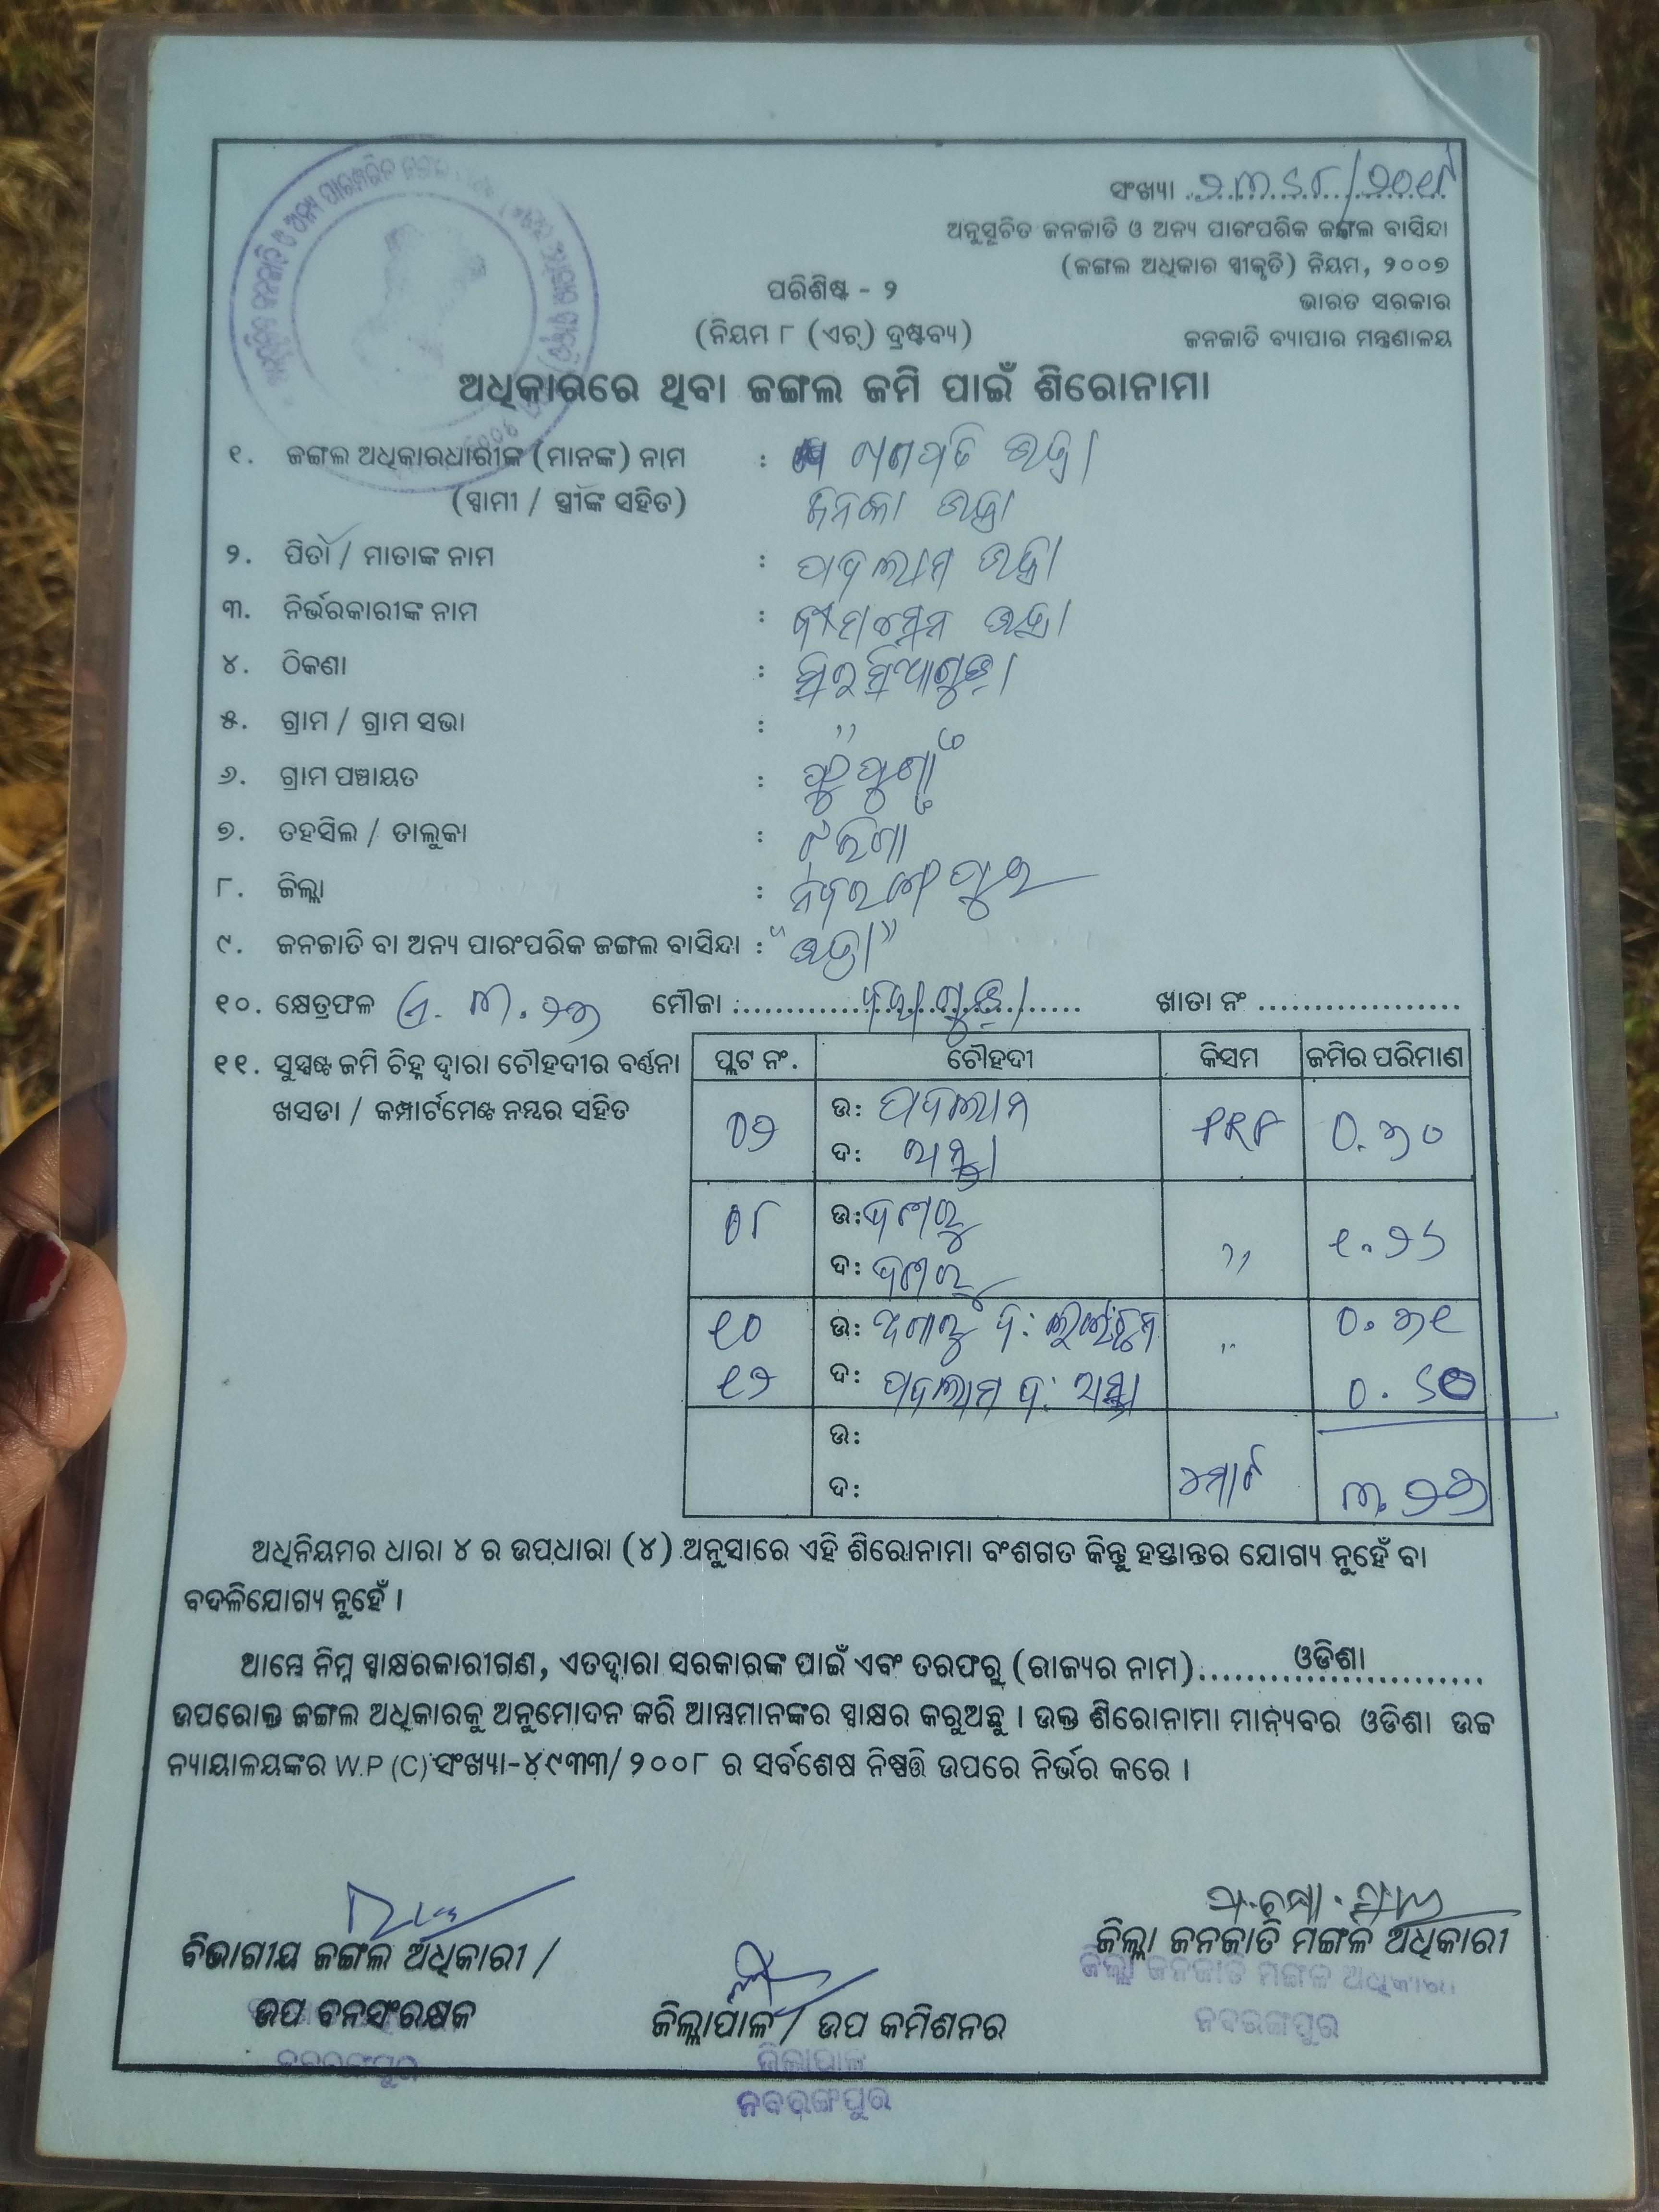 ସଂଖ୍ୟା ୨୩୫୮/୨୦୧୮
ଅନୁସୂଚିତ ଜନଜାତି ଓ ଅନ୍ୟ ପାରଂପରିକ ଜଙ୍ଗଲ ବାସିନ୍ଦା
(ଜଙ୍ଗଲ ଅଧିକାର ସ୍ଵୀକୃତି) ନିୟମ, ୨୦୦୭
ଭାରତ ସରକାର
ଜନଜାତି ବ୍ୟାପାର ମନ୍ତ୍ରଣାଳୟ
ପରିଶିଷ୍ଟ - ୨
(ନିୟମ ୮ (ଏଚ୍) ଦ୍ରଷ୍ଟବ୍ୟ)
ଅଧିକାରରେ ଥିବା ଜଙ୍ଗଲ ଜମି ପାଇଁ ଶିରୋନାମା
୧. ଜଙ୍ଗଲ ଅଧିକାରଧାରୀଙ୍କ (ମାନଙ୍କ) ନାମ : ଗଣପତି ଭତ୍ରା
(ସ୍ଵାମୀ / ସ୍ତ୍ରୀଙ୍କ ସହିତ) ଭତ୍ରା
୨. ପିତା / ମାତାଙ୍କ ନାମ : ପାଦଲାମ ଭତ୍ରା
୩. ନିର୍ଭରକାରୀଙ୍କ ନାମ : ଭୀମସେନ ଭତ୍ରା
୪. ଠିକଣା :
୫. ଗ୍ରାମ / ଗ୍ରାମ ସଭା : ''
୬. ଗ୍ରାମ ପଞ୍ଚାୟତ :
୭. ତହସିଲ / ତାଲୁକା : ଝରିଗାଁ
୮. ଜିଲ୍ଲା : ନବରଙ୍ଗପୁର
୯. ଜନଜାତି ବା ଅନ୍ୟ ପାରଂପରିକ ଜଙ୍ଗଲ ବାସିନ୍ଦା : "ଭତ୍ରା"
୧୦. କ୍ଷେତ୍ରଫଳ ଏ. ୩.୨୭ ମୌଜା : ଖାତା ନଂ
୧୧. ସୁସ୍ପଷ୍ଟ ଜମି ଚିହ୍ନ ଦ୍ଵାରା ଚୌହଦୀର ବର୍ଣ୍ଣନା
ଖସଡା / କମ୍ପାର୍ଟମେଣ୍ଟ ନମ୍ବର ସହିତ
ପ୍ଲଟ ନଂ. ଚୌହଦୀ କିସମ ଜମିର ପରିମାଣ
0୨ ଉ: ପାଦଲାମ PRF 0.୭୦
ଦ:
0୮ ଉ: ଦଶରୁ '' ୧.୨୫
ଦ: ଦଶରୁ
୧0 ଉ: '' 0.୭୧
୧୨ ଦ: ପାଦଲାମ ଦ: 0.୫
ଉ:
ଦ: ୩.୨୭
ଅଧିନିୟମର ଧାରା ୪ ର ଉପଧାରା (୪) ଅନୁସାରେ ଏହି ଶିରୋନାମା ବଂଶଗତ କିନ୍ତୁ ହସ୍ତାନ୍ତର ଯୋଗ୍ୟ ନୁହେଁ ବା
ବଦଳିଯୋଗ୍ୟ ନୁହେଁ ।
ଆମ୍ଭେ ନିମ୍ନ ସ୍ଵାକ୍ଷରକାରୀଗଣ, ଏତଦ୍ଵାରା ସରକାରଙ୍କ ପାଇଁ ଏବଂ ତରଫରୁ (ରାଜ୍ୟର ନାମ) ଓଡିଶା
ଉପରୋକ୍ତ ଜଙ୍ଗଲ ଅଧିକାରକୁ ଅନୁମୋଦନ କରି ଆମ୍ଭମାନଙ୍କର ସ୍ଵାକ୍ଷର କରୁଅଛୁ । ଉକ୍ତ ଶିରୋନାମା ମାନ୍ୟବର ଓଡିଶା ଉଚ୍ଚ
ନ୍ୟାୟାଳୟଙ୍କର W.P (C) ସଂଖ୍ୟା-୪୯୩୩/୨୦୦୮ ର ସର୍ବଶେଷ ନିଷ୍ପତ୍ତି ଉପରେ ନିର୍ଭର କରେ ।
ବିଭାଗୀୟ ଜଙ୍ଗଲ ଅଧିକାରୀ /
ଉପ ବନସଂରକ୍ଷକ
ନବରଙ୍ଗପୁର
ଜିଲ୍ଲାପାଳ / ଉପ କମିଶନର
ଜିଲ୍ଲାପାଳ
ନବରଙ୍ଗପୁର
ଜିଲ୍ଲା ଜନଜାତି ମଙ୍ଗଳ ଅଧିକାରୀ
ଜିଲ୍ଲା ଜନଜାତି ମଙ୍ଗଳ ଅଧିକାରୀ
ନବରଙ୍ଗପୁର